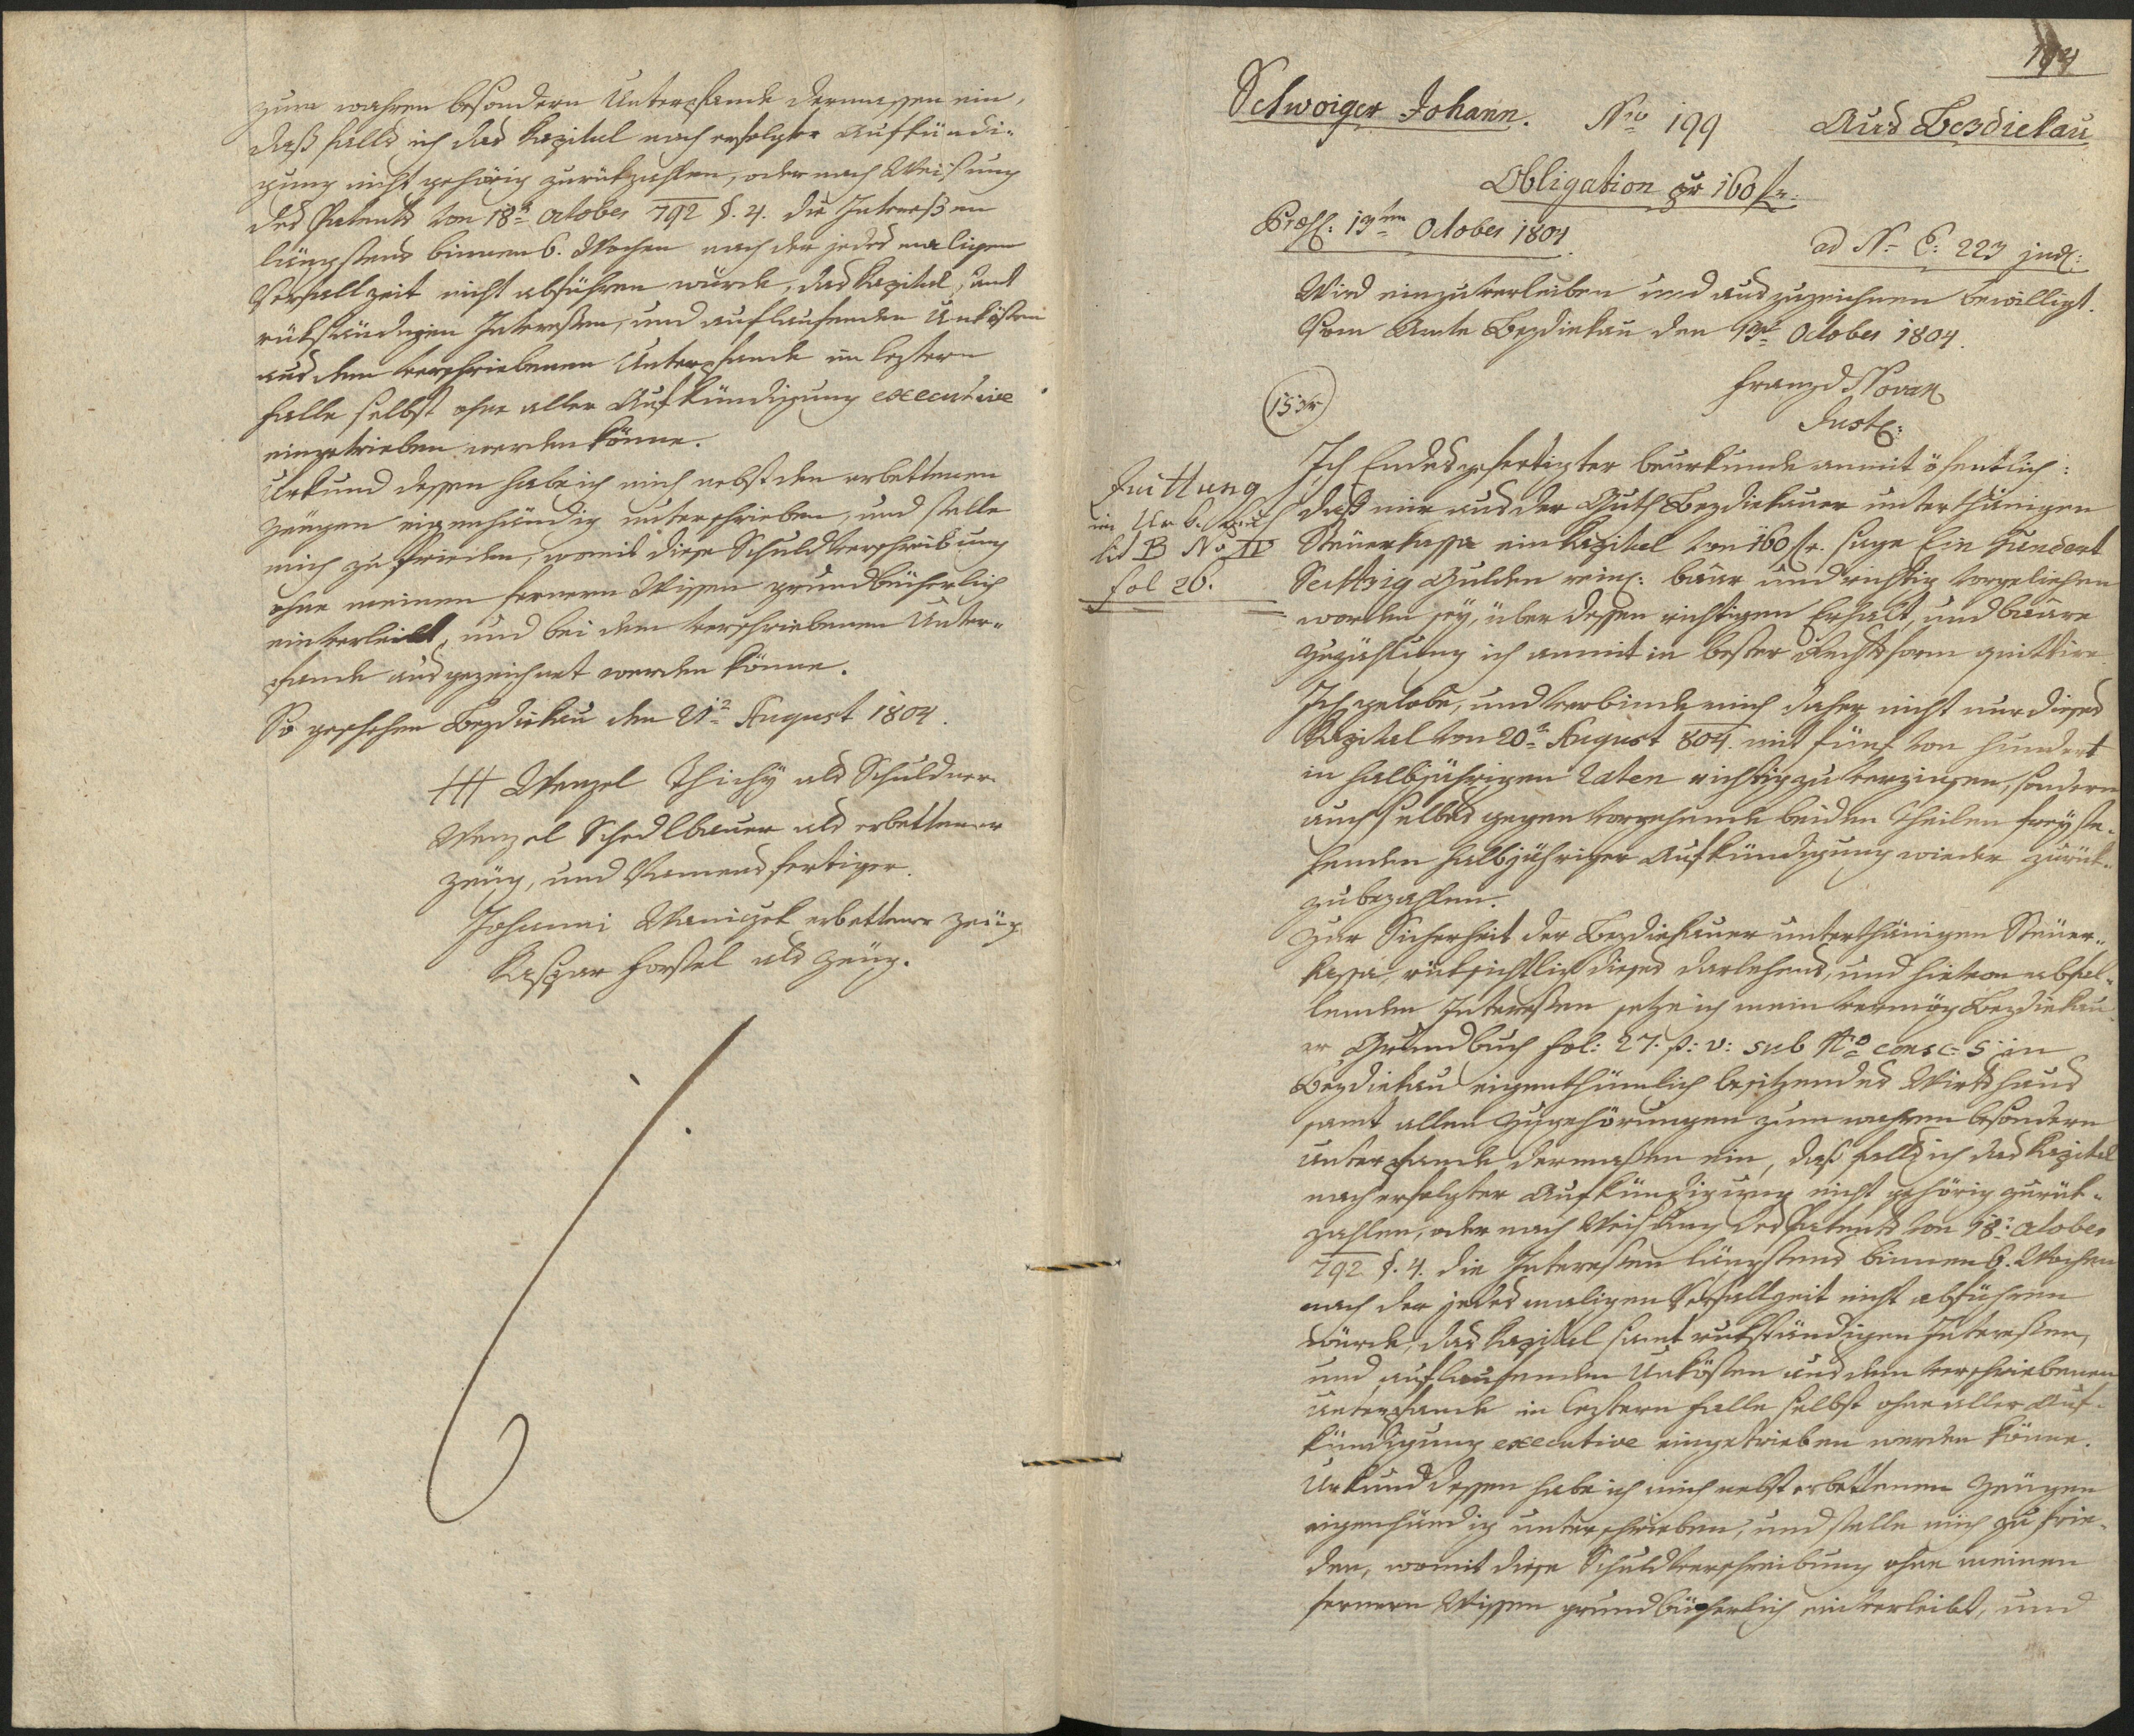 zum wahren besondern Unterpfande dermassen ein,
daß falls ich das Kapital nach erfolgter Aufkündi-
gung nicht gehörig zurükzahlen, oder nach Weisung
des Patents von 18n October 792 §. 4. die Intreßen
längstens binnen 6. Wochen nach der jedesmaligen
Verfallzeit nicht abführen würde, das Kapital, samt
rükständigen Intereßen, und auflaufenden Unkösten
aus dem verschriebenen Unterpfande im leztern
Falle selbst ohne aller Aufkündigung executive
eingetrieben werden könne.
Urkund dessen habe ich mich nebst den erbettenen
Zeugen eigenhändig unterschrieben, und stelle
mich zu frieden, womit diese Schuldverschreibung
ohne meinen fernern Wissen grundbücherlich
einverleibt, und bei dem verschriebenen Unter-
pfande ausgezeichnet werden könne.
So geschehen Bezdiekau den 21n August 1804.
+++ Wenzel Thichÿ als Schuldner
Wenzel Schedlbauer als erbettener
Zeug, und Namensfertiger.
Johanni Waniczek erbettener Zeug
Kaspar Forstel als Zeug.
194
Schwoiger Johann. Nro 199 Aus Bezdiekau
Obligation pr 160 fr.
Præs: 13ten October 1804.
ad No E: 223 jud:
Wird einzuverleiben und auszuzeichnen bewilligt.
Vom Amte Bezdiekau den 13n October 1804.
Franz Novak
Just:
153r
Quittung
im Urb.
lit B No IV
fol 26.
Ich Endesgefertigter beurkunde anmit öfentlich:
daß mir aus der Guth Bezdiekauer unterthänigen
Steuerkassa ein Kapital von 160 fr. sage Ein Hundert
Sechzig Gulden rein: baar und richtig vorgeliehen
worden seÿ, über dessen richtigen Erhalt, und baare
Zuzählung ich anmit in bester Rechtsform quittire.
Ich gelobe, und verbinde mich daher nicht nur dieses
Kapital von 20n August 804. mit fünf von Hundert
in halbjährigen Raten richtig zu verzinsen, sondern
auch selbes gegen vorgehende beiden Theilen freÿste-
henden halbjähriger Aufkündigung wieder zurük-
zubezahlen.
Zur Sicherheit der Bezdiekauer unterthänigen Steuer-
kassa, rüksichtlich dieses Darlehens, und hievon abfal-
lenden Intereßen setze ich mein vermög Bezdiekau-
er Grundbuch fol: 27. p: v: sub Nro consc: 5. in
Bezdiekau eigenthümlich besitzendes Wirthshaus
samt allen Zugehörungen zum wahren besondern
Unterpfande dermaßen ein, daß falls ich das Kapital
nach erfolgter Aufkündigung nicht gehörig zurük-
zahlen, oder nach Weisung des Patents von 18n October
792 §. 4. die Intereßen längstens binnen 6. Wochen
nach der jedesmaligen Verfallzeit nicht abführen
würde, das Kapital samt rukständigen Intereßen,
und auflaufenden Unkösten aus dem verschriebenen
Unterpfande in leztern Falle selbst ohne aller Auf-
kündigung executive eingetrieben werden könne.
Urkund dessen habe ich mich nebst erbettenen Zeugen
eigenhändig unterschrieben, und stelle mich zu frie-
den, womit diese Schuldverschreibung ohne meinen
fernern Wissen grundbücherlich einverleibt, und